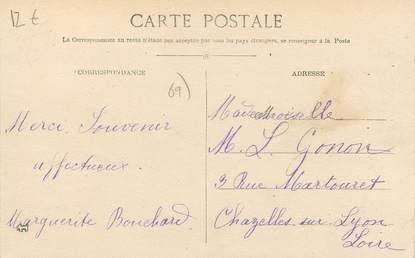 12 €
CARTE POSTALE
La Correspondance au recto n'étant pas acceptée par tous les pays étrangers, se renseigner à la Poste
CORRESPONDANCE
ADRESSE
69)
Merci. Souvenir
affectueux.
Marguerite Bouchard.
Mademoiselle
M. L. Gonon
3 Rue Martouret
Chazelles sur Lyon
Loire